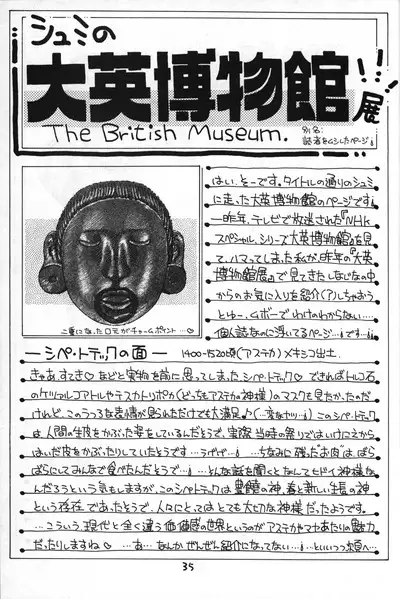 シュミの
大英博物館展!!
The British Museum.
別名:
読者をムシしたページ
はい、そーです。タイトルの通りのシュミ
に走った大英博物館のページです
一昨年、テレビで放送された『NHK
スペシャル、シリーズ大英博物館』を見
て、ハマってしまった私が、昨年の『大英
博物館展』で見てきたしなじなの中
からのお気に入りを紹介(ア)しちゃおう
とゆー、ムボーでわけのわからない…
個人誌なのに浮いてるページ…す…
二重になった口元がチャームポイント…♡
—シペ・トテックの面—
1400-1520頃(アステカ)メキシコ出土.
きゃあ、すてき♡などと実物を前に思ってしまった、シペ・トテック♡できればトルコ石
のケツァルコアトルやテスカトリポカ(どっちもアステカの神様)のマスクも見たかったのだ
けれど、このうつろな表情が見られただけでも大満足♪(…変なヤツ…)このシペ・トテック
は人間の生皮をかぶった姿をしているんだそうで、実際、当時の祭りではいけにえから
はいだ皮をかぶったりしていたそうです…ちなみに残った"お肉"はばら
ばらにしてみんなで食べたんだそうで…どんな話を聞くとなんてヒドイ神様な
んだろうという気もしますが、このシペ・トテックは豊饒の神、春と新しい生長の神
という存在であったそうで、人々にとってはとても大切な神様だったようです。
…こういう、現代と全く違う価値感の世界というのがアステカやマヤあたりの魅力
だったりしますね♡…あ…なんかぜんぜん紹介になってない…といいつつ次頁へ…
35